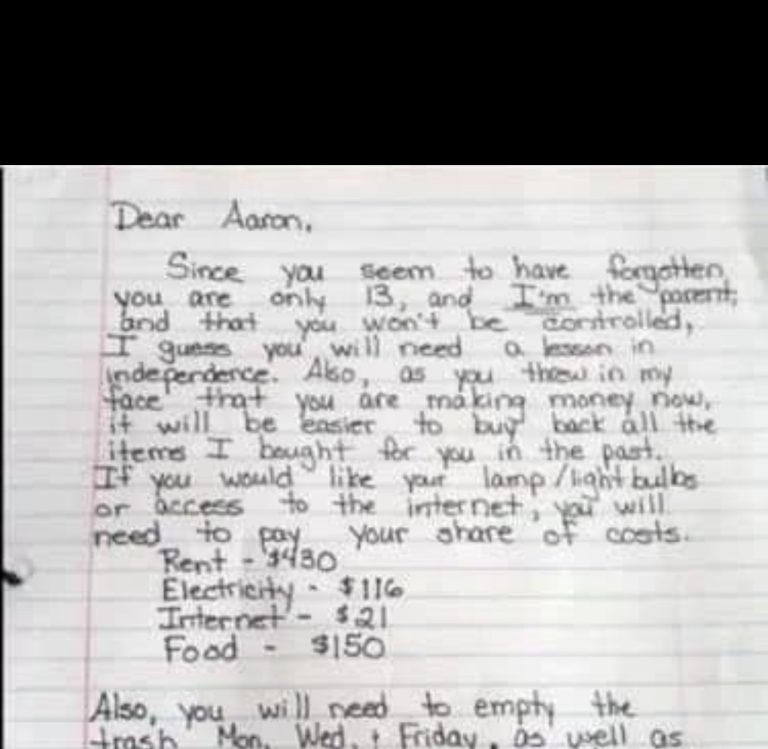 Dear Aaron,
Since you seem to have forgotten
you are only 13, and I'm the parent,
and that you won't be controlled,
I guess you will need a lesson in
independence. Also, as you threw in my
face that you are making money now,
it will be easier to buy back all the
items I bought for you in the past.
If you would like your lamp/light bulbs
or access to the internet, you will
need to pay your share of costs.
Rent - $430
Electricity - $116
Internet - $21
Food - $150
Also, you will need to empty the
trash Mon, Wed, + Friday, as well as